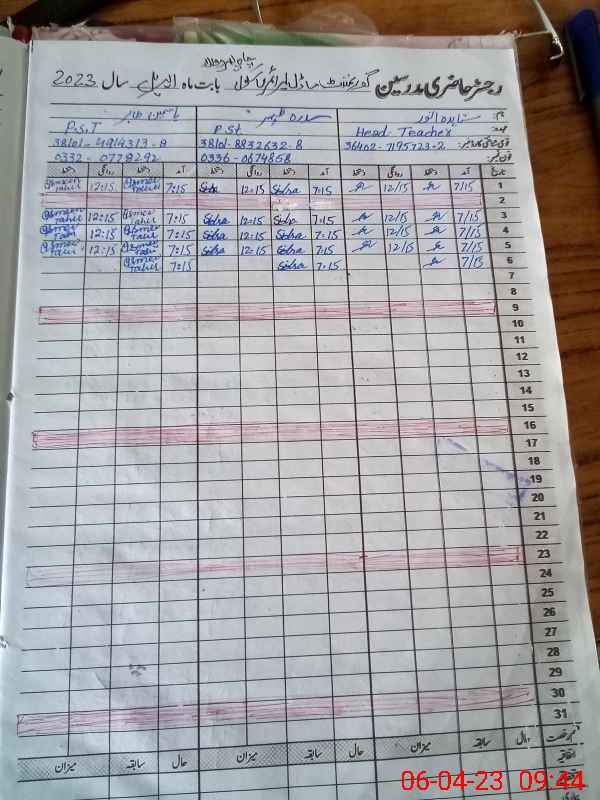 رجسٹر حاضری مدرسین گورنمنٹ ماڈل پرائمری سکول بابت ماہ اپریل سال 2023
نام شاہدہ انور سدرہ ظہیر یاسمین طاہر
عہدہ Head Teacher PSt P.S.T
36402-7195723-2 38101-8832632-8 38101-4914313-8
فون نمبر 0336-0674858 0332-0778292
تاریخ آمد دستخط روانگی دستخط آمد دستخط روانگی دستخط آمد دستخط روانگی دستخط
1 7/15 12/15 7:15 Sidra 12:15 Sidra 7:15 12:15
2
3 7/15 12/15 7:15 Sidra 12:15 Sidra 7:15 12:15
4 7/15 12/15 7:15 Sidra 12:15 Sidra 7:15 12:15
5 7/15 12/15 7:15 Sidra 12:15 Sidra 7:15 12:15
6 7/15 7:15 Sidra 7:15
7
8
9
10
11
12
13
14
15
16
17
18
19
20
21
22
23
24
25
26
27
28
29
30
31
حال سابقہ میزان حال سابقہ میزان حال سابقہ میزان
اتفاقیہ
06-04-23 09:44